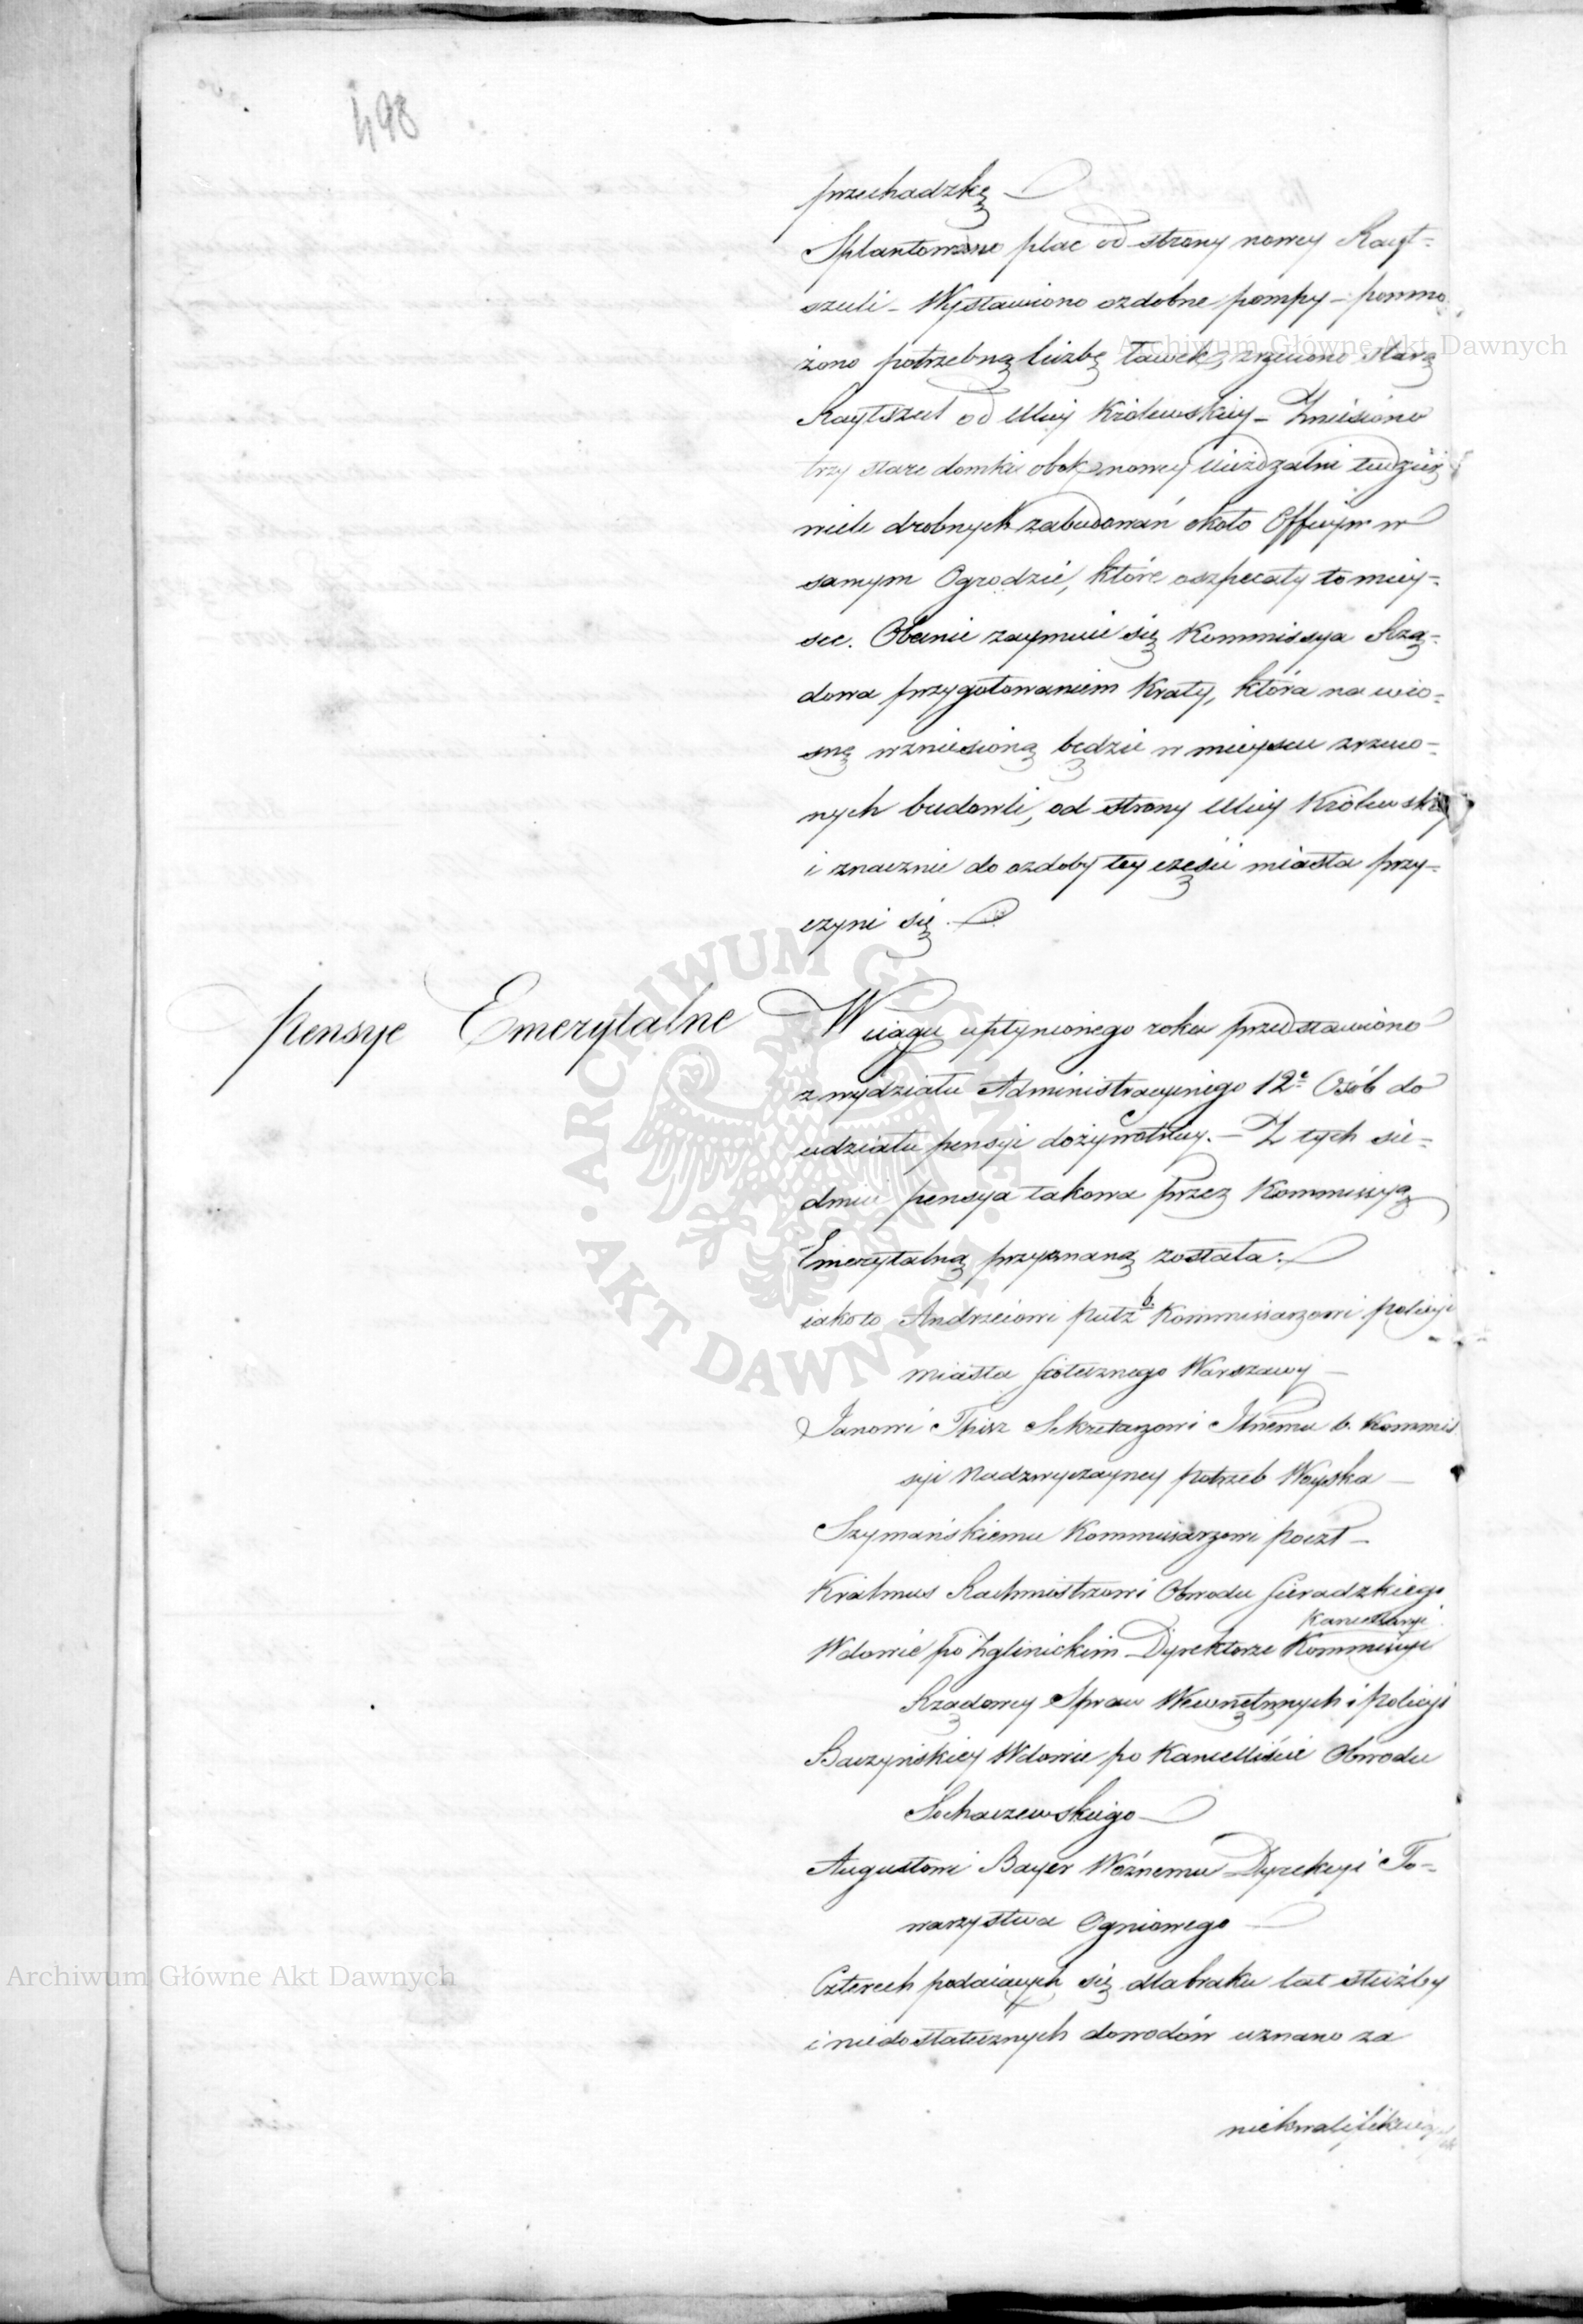 498
przechadzkę
Splantowano plac od strony nowey Rayt-
szuli – Wystawiono ozdobne pompy – pomno
żono potrzebną liczbę ławek, zrzucono starą
Raytszul od Ulicy Królewskiey – Zniesiono
trzy stare domki obok nowey Uieżdzalni tudzież
wiele drobnych zabudowań około Officyn w
samym Ogrodzie, które oszpecały to miey-
sce. Obecnie zaymuie się Kommissya Rzą-
dowa przygotowaniem Kraty, która na wio-
snę wzniesioną będzie w mieyscu zrzuco-
nych budowli, od strony Ulicy Królewskiey
i znacznie do ozdoby tey części miasta przy-
czyni się.
Pensye Emerytalne
W ciągu upłynionego roku przedstawiono
z wydziału Administracyinego 12. Osób do
udziału pensyi dożywotniey. – Z tych sie-
dmiu pensya takowa przez Kommissyą
Emerytalną przyznaną została:
iako to Andrzeiowi Putz b. Kommissarzowi policyi
miasta Stołecznego Warszawy –
Janowi Thisz Sekretarzowi Jlnemu b. Kommis
syi Nadzwyczayney potrzeb Woyska –
Szymańskiemu Kommissarzowi poczt –
Rachmistrzowi Obwodu Sieradzkiego
Kancellaryi
Wdowie po Zglinickim Dyrektorze Kommissyi
Rządowey Spraw Wewnętrznych i Policyi
Baczyńskiey Wdowie po Kancelliście Obwodu
Sochaczewskiego –
Augustowi Bayer Woźnemu Dyrekcyi To-
warzystwa Ogniowego –
Czterech podaiących się dla braku lat służby
i niedostatecznych dowodów uznano za
Archiwum Główne Akt Dawnych
Archiwum Główne Akt Dawnych
ARCHIWUM GŁÓWNE · AKT DAWNYCH ·